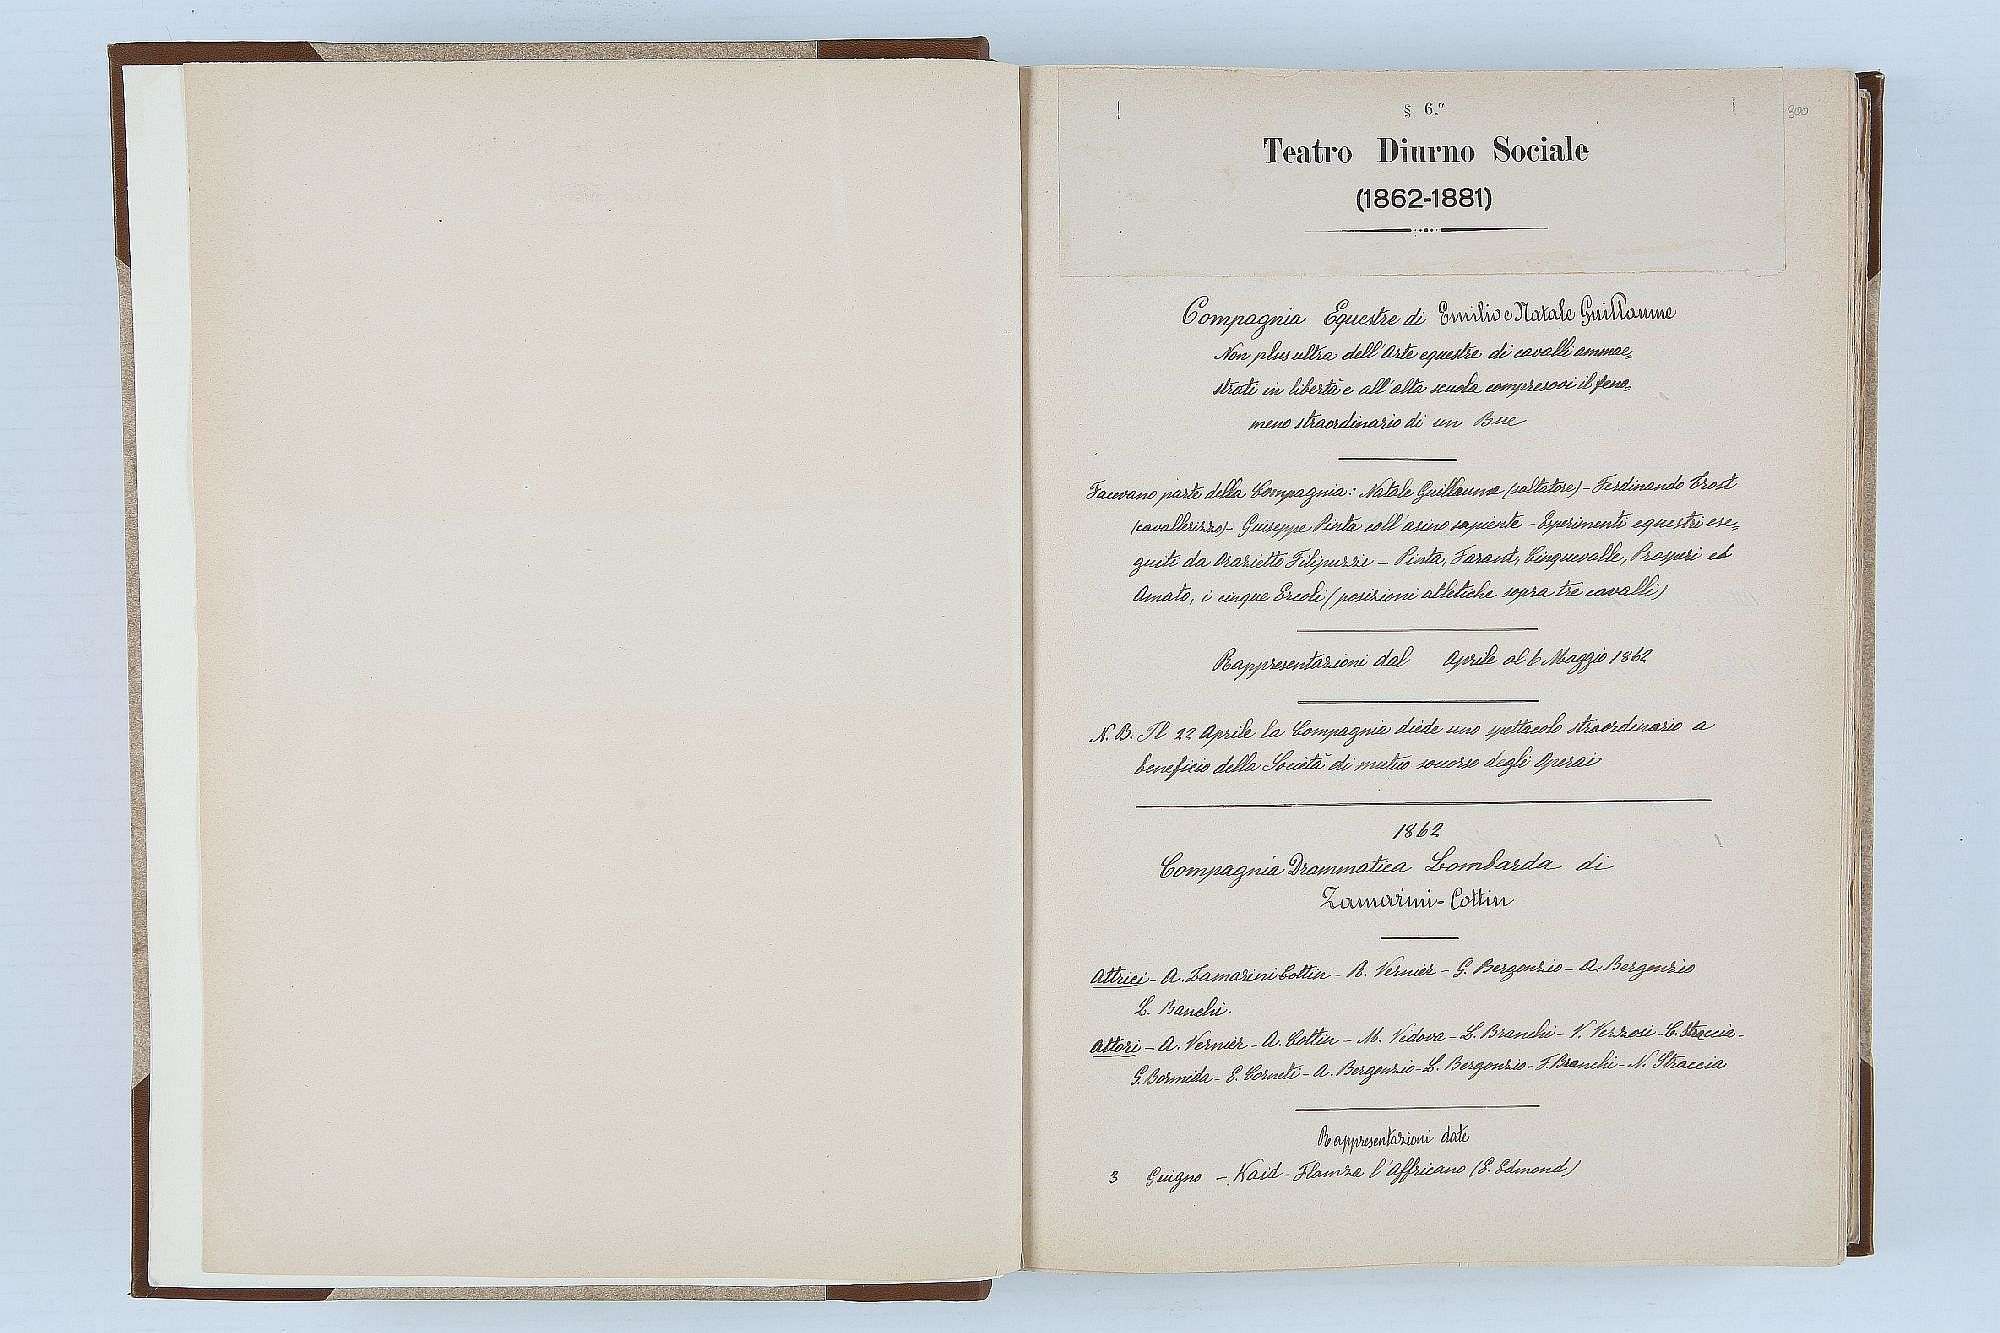 § 6.º
300
Teatro Diurno Sociale
(1862-1881)
Compagnia Equestre di Emilio e Natale Guillaume
Non plus ultra dell'Arte equestre di cavalli ammae-
strati in libertà e all'alta scuola compresovi il feno-
meno straordinario di un Bue
Facevano parte della Compagnia: Natale Guillaume (saltatore) - Ferdinando Trost
(cavallerizzo) - Giuseppe Pinta coll'asino sapiente - Esperimenti equestri ese-
guiti da Orazietto Filipuzzi - Pinta, Farant, Cinquevalle, Prosperi ed
Amato, i cinque Ercoli (posizioni atletiche sopra tre cavalli)
Rappresentazioni dal Aprile al 6 Maggio 1862
N. B. Il 22 Aprile la Compagnia diede uno spettacolo straordinario a
beneficio della Società di mutuo soccorso degli Operai
1862
Compagnia Drammatica Lombarda di
Zamarini-Cottin
Attrici - A. Zamarini Cottin - R. Vernier - G. Bergonzio - A. Bergonzio
L. Bianchi.
Attori - A. Vernier - A. Cottin - M. Vedova - L. Branchi - V. Vezzosi - C. Straccia -
G. Bormida - E. Corneti - A. Bergonzio - L. Bergonzio - F. Branchi - N. Straccia
Rappresentazioni date
3 Giugno - Kaid - Flamza l'Affricano (E. Edmond)